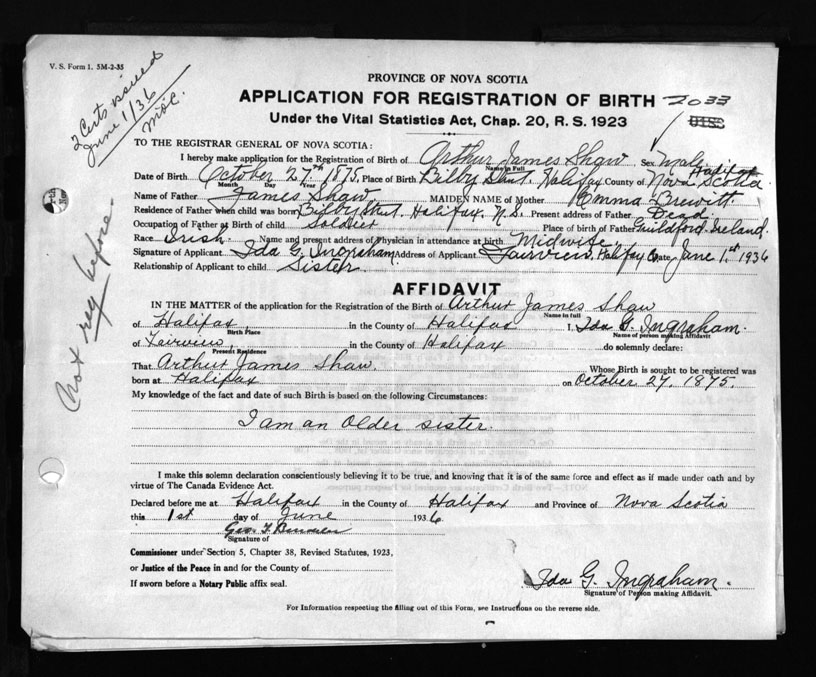 V. S. Form 1. 5M-2-35
2 Certs issued
June 1/36
PROVINCE OF NOVA SCOTIA
APPLICATION FOR REGISTRATION OF BIRTH 2033
Under the Vital Statistics Act, Chap. 20, R. S. 1923
TO THE REGISTRAR GENERAL OF NOVA SCOTIA:
I hereby make application for the Registration of Birth of Arthur James Shaw Sex Male
Name in Full
Date of Birth October 27th 1875, Place of Birth Bilby Street, Halifax County of Halifax Nova Scotia.
Month Day Year
Name of Father James Shaw MAIDEN NAME of Mother Emma Brewitt.
Residence of Father when child was born Bilby Street, Halifax, N.S. Present address of Father Dead.
Occupation of Father at Birth of child Soldier Place of birth of Father Guildford, Ireland.
Race Irish. Name and present address of Physician in attendance at birth Midwife
Signature of Applicant Ida G. Ingraham Address of Applicant Fairview, Halifax Co Date June 1st 1936
Relationship of Applicant to child Sister
Not reg before.
AFFIDAVIT
IN THE MATTER of the application for the Registration of the Birth of Arthur James Shaw
Name in full
of Halifax, in the County of Halifax I, Ida G. Ingraham.
Birth Place Name of person making Affidavit
of Fairview, in the County of Halifax do solemnly declare:
Present Residence
That Arthur James Shaw. Whose Birth is sought to be registered was
born at Halifax on October 27, 1875.
My knowledge of the fact and date of such Birth is based on the following Circumstances:
I am an older sister.
I make this solemn declaration conscientiously believing it to be true, and knowing that it is of the same force and effect as if made under oath and by
virtue of The Canada Evidence Act.
Declared before me at Halifax in the County of Halifax and Province of Nova Scotia
this 1st day of June 1936
Signature of
Commissioner under Section 5, Chapter 38, Revised Statutes, 1923,
or Justice of the Peace in and for the County of
If sworn before a Notary Public affix seal.
Ida G. Ingraham.
Signature of Person making Affidavit.
For Information respecting the filling out of this Form, see Instructions on the reverse side.